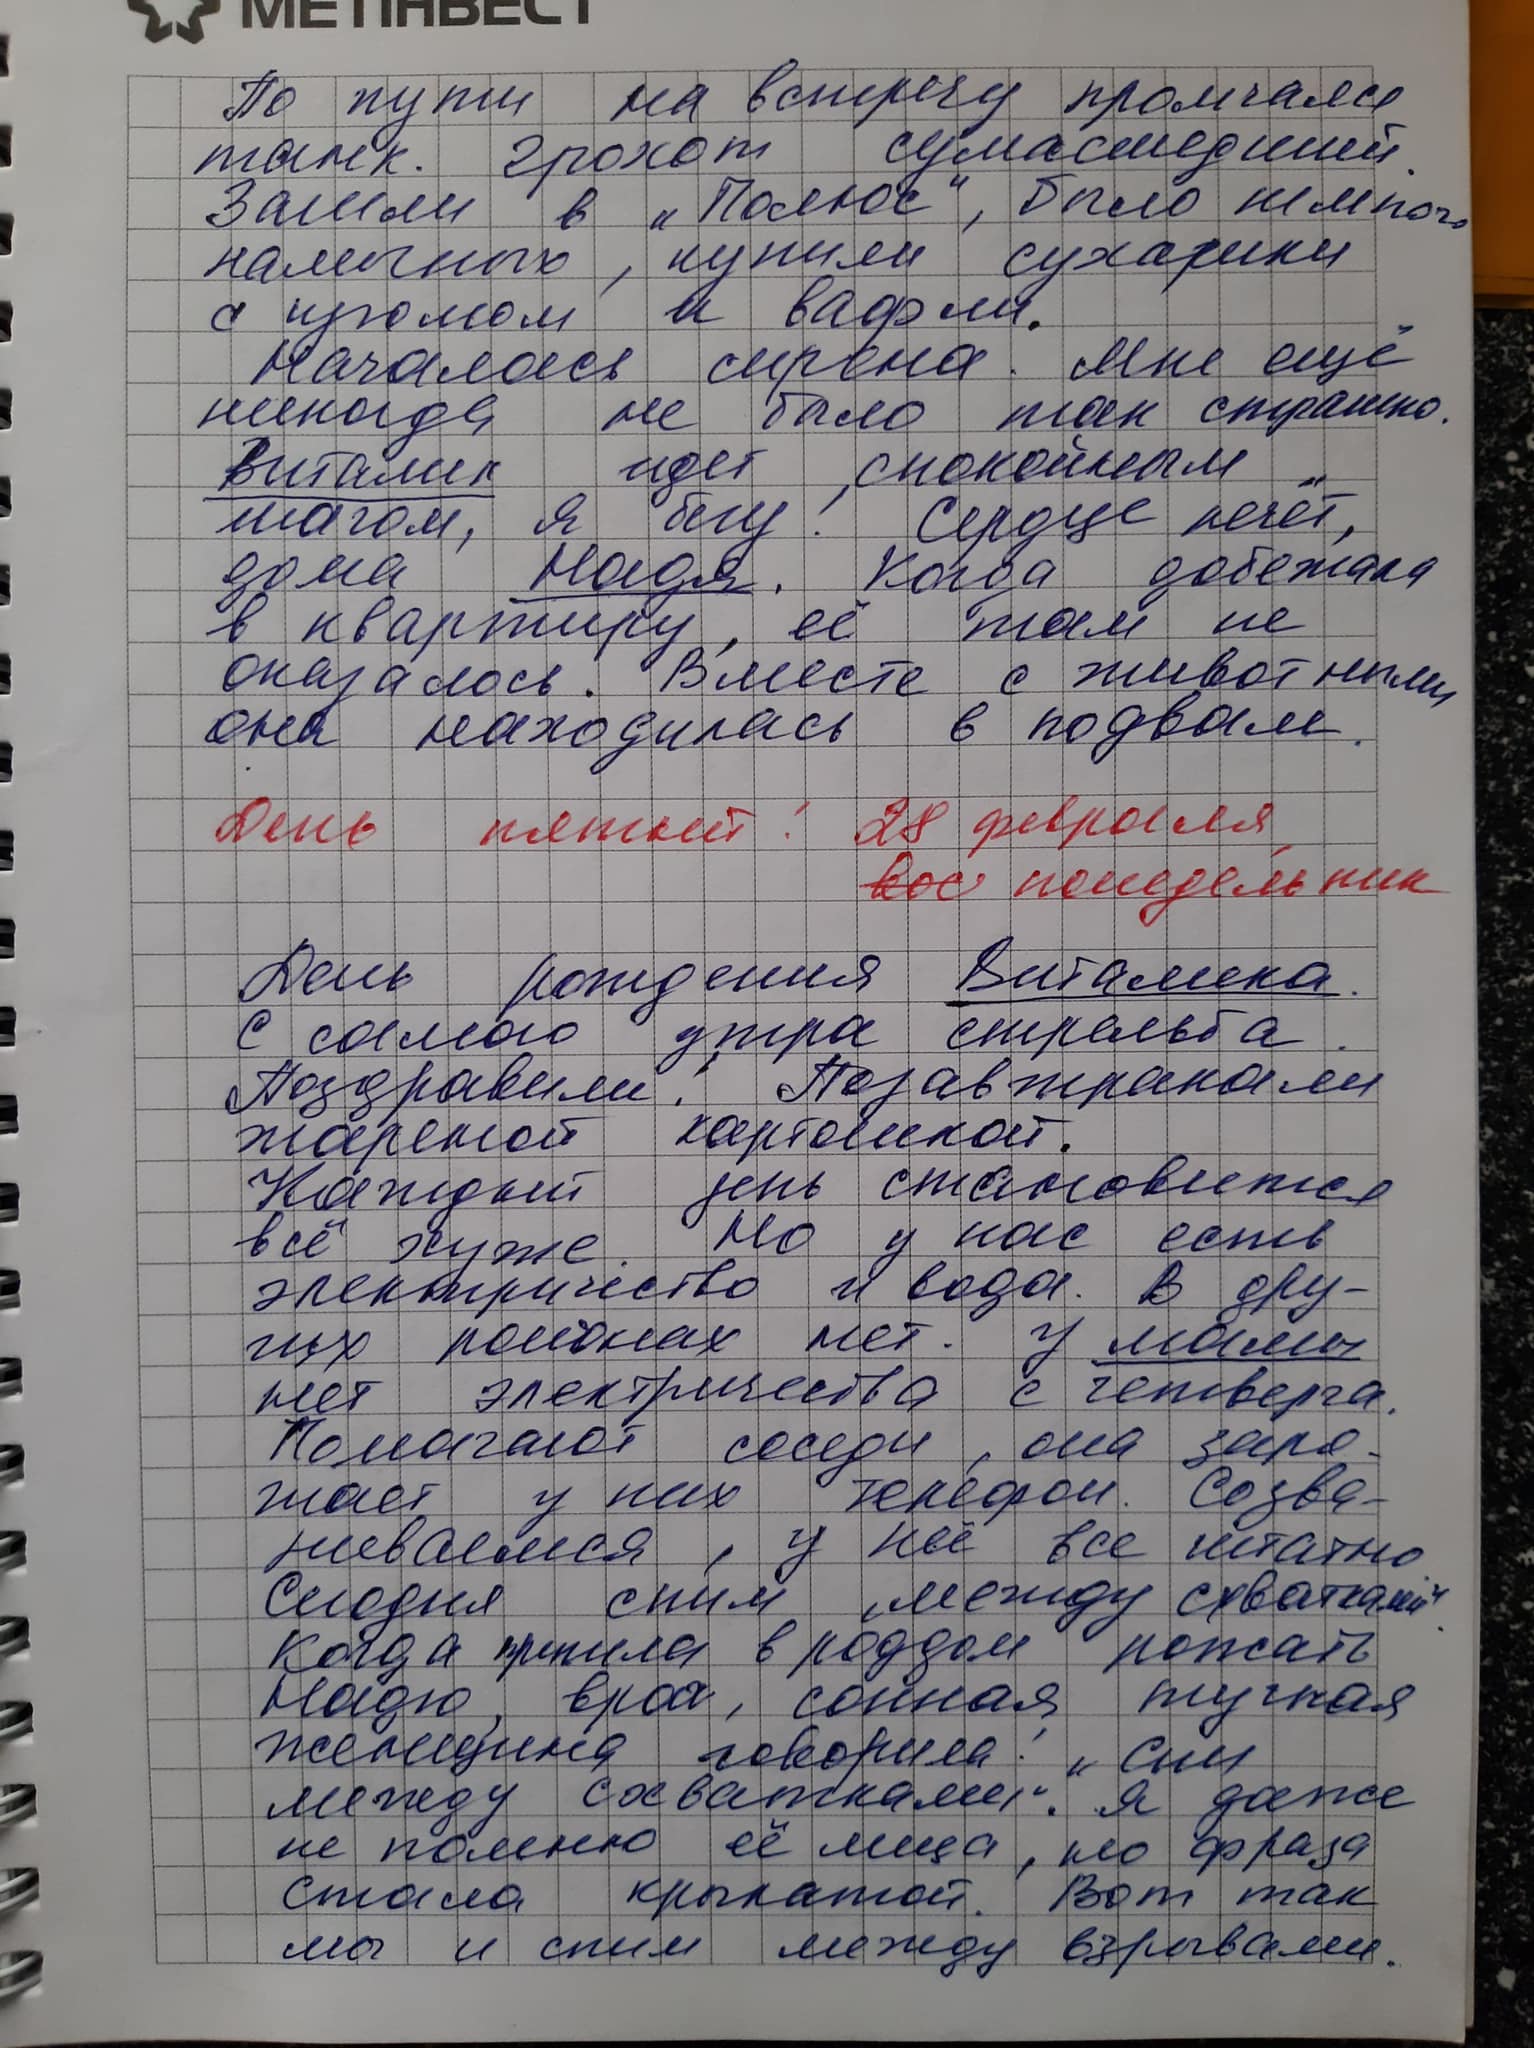 МЕТІНВЕСТ
По пути на встречу промчался
танк. Грохот сумасшедший.
Зашли в „Полюс“, было немного
наличных, купили сухарики
с изюмом и вафли.
Началась сирена. Мне ещё
никогда не было так страшно.
Виталик идет спокойным
шагом, я бегу! Сердце печёт,
дома Надя. Когда добежала
в квартиру, её там не
оказалось. Вместе с животными
она находилась в подвале.
День пятый! 28 февраля,
вос понедельник
День рождения Виталика.
С самого утра стрельба.
Поздравили! Позавтракали
жареной картошкой.
Каждый день становится
всё хуже. Но у нас есть
электричество и вода. В дру-
гих районах нет. У мамы
нет электричества с четверга.
Помогают соседи, она заря-
жает у них телефон. Созва-
ниваемся, у неё все штатно
Сегодня спим „между схватками“.
Когда пришла в роддом рожать
Надю, врач, сонная тучная
женщина говорила: „Спи
между схватками“. Я даже
не помню её лица, но фраза
стала крылатой. Вот так
мы и спим между взрывами.